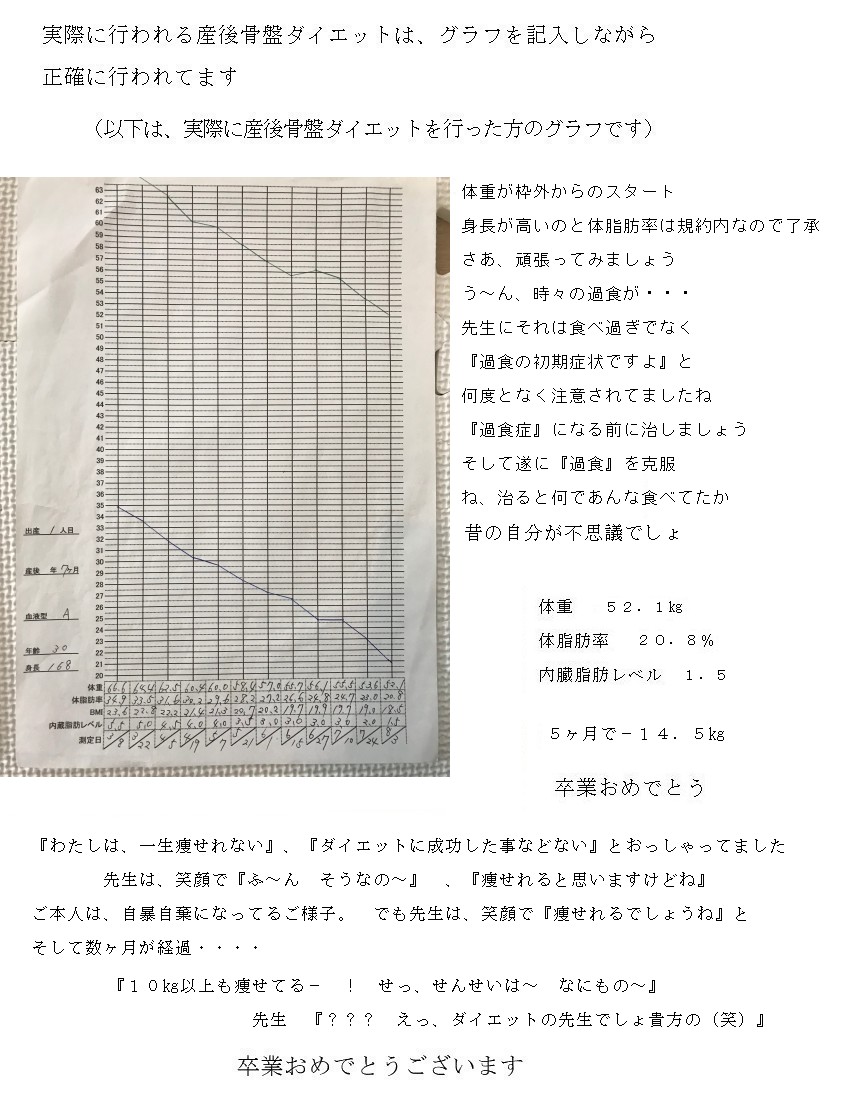 実際に行われる産後骨盤ダイエットは、グラフを記入しながら
正確に行われてます
（以下は、実際に産後骨盤ダイエットを行った方のグラフです）
体重が枠外からのスタート
身長が高いのと体脂肪率は規約内なので了承
さあ、頑張ってみましょう
う～ん、時々の過食が・・・
先生にそれは食べ過ぎでなく
『過食の初期症状ですよ』と
何度となく注意されてましたね
『過食症』になる前に治しましょう
そして遂に『過食』を克服
ね、治ると何であんな食べてたか
昔の自分が不思議でしょ
63
62
61
60
59
58
57
56
55
54
53
52
51
50
49
48
47
46
45
44
43
42
41
40
39
38
37
36
35
34
33
32
31
30
29
28
27
26
25
24
23
22
21
20
出産 1 人目
産後 年 7ヶ月
血液型 A
年齢 30
身長 168
体重 66.6 64.4 62.5 60.4 60.0 58.4 57.0 55.7 56.1 55.5 53.6 52.1
体脂肪率 34.9 33.5 31.6 30.2 29.6 28.2 27.2 26.6 24.8 24.7 23.0 20.8
BMI 23.6 22.8 22.2 21.4 21.3 20.7 20.2 19.7 19.9 19.7 19.0 18.5
内蔵脂肪レベル 5.5 5.0 4.5 4.0 4.0 3.5 3.0 3.0 3.0 3.0 2.0 1.5
測定日 3/8 3/22 4/5 4/19 5/7 5/21 6/1 6/15 6/27 7/10 7/24 8/3
体重　５２．１㎏
体脂肪率　２０．８％
内臓脂肪レベル　１．５
５ヶ月で－１４．５㎏
卒業おめでとう
『わたしは、一生痩せれない』、『ダイエットに成功した事などない』とおっしゃってました
先生は、笑顔で『ふ～ん　そうなの～』　、『痩せれると思いますけどね』
ご本人は、自暴自棄になってるご様子。　でも先生は、笑顔で『痩せれるでしょうね』と
そして数ヶ月が経過・・・・
『１０㎏以上も痩せてる－　！　せっ、せんせいは～　なにもの～』
先生　『？？？　えっ、ダイエットの先生でしょ貴方の（笑）』
卒業おめでとうございます